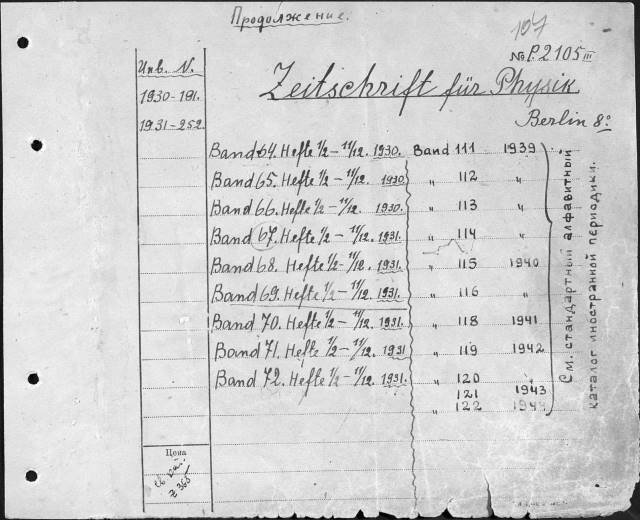 Продолжение.
107
№ P.2105 III
Инв. N.
Zeitschrift für Physik
1930-191.
1931-252.
Berlin 8°
Band 64. Hefte 1/2 – 11/12. 1930. Band 111 1939
Band 65. Hefte 1/2 – 11/12. 1930 " 112 "
Band 66. Hefte 1/2 – 11/12. 1930. " 113 "
Band 67. Hefte 1/2 – 11/12. 1931. " 114 "
Band 68. Hefte 1/2 – 11/12. 1931. " 115 1940
Band 69. Hefte 1/2 – 11/12. 1931. " 116 "
Band 70. Hefte 1/2 – 11/12. 1931. " 118 1941
Band 71. Hefte 1/2 – 11/12. 1931 " 119 1942
Band 72. Hefte 1/2 – 11/12. 1931. " 120
121 1943
" 122
См. стандартный алфавитный
каталог иностранной периодики.
Цена